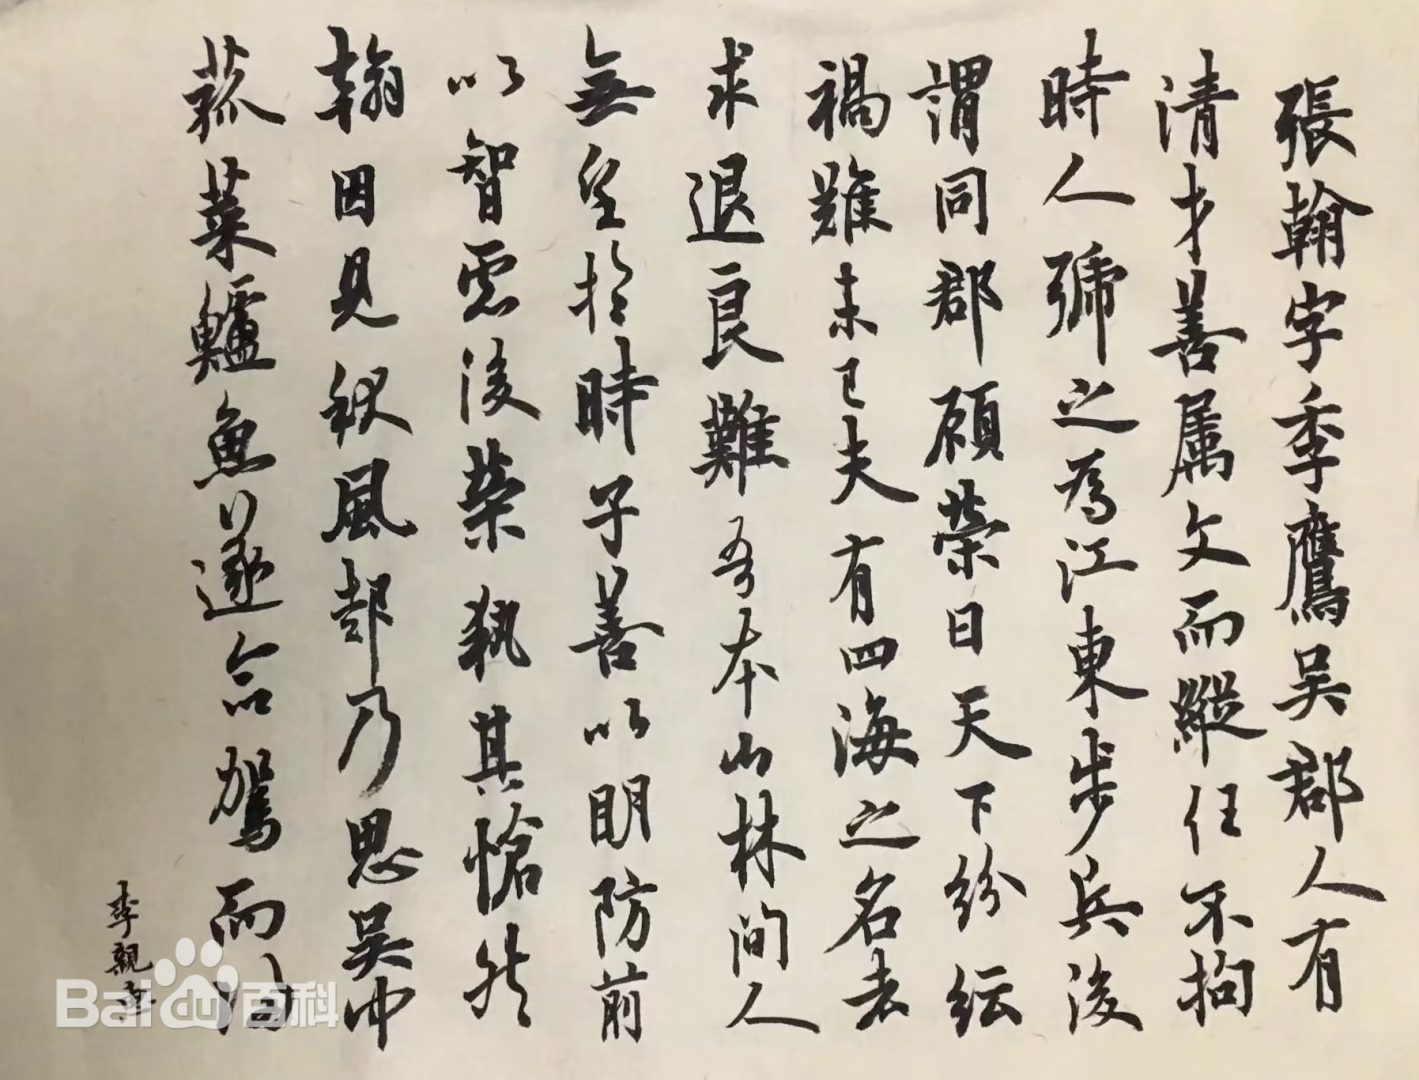 張翰字季鷹吴郡人有
清才善属文而縱任不拘
時人號之為江東步兵後
謂同郡顧榮曰天下紛紜
禍難未已夫有四海之名者
求退良難吾本山林間人
無望於時子善以明防前
以智慮後榮執其愴然
翰因見秋風起乃思吴中
菰菜鱸魚遂命駕而
李親
Bai百科